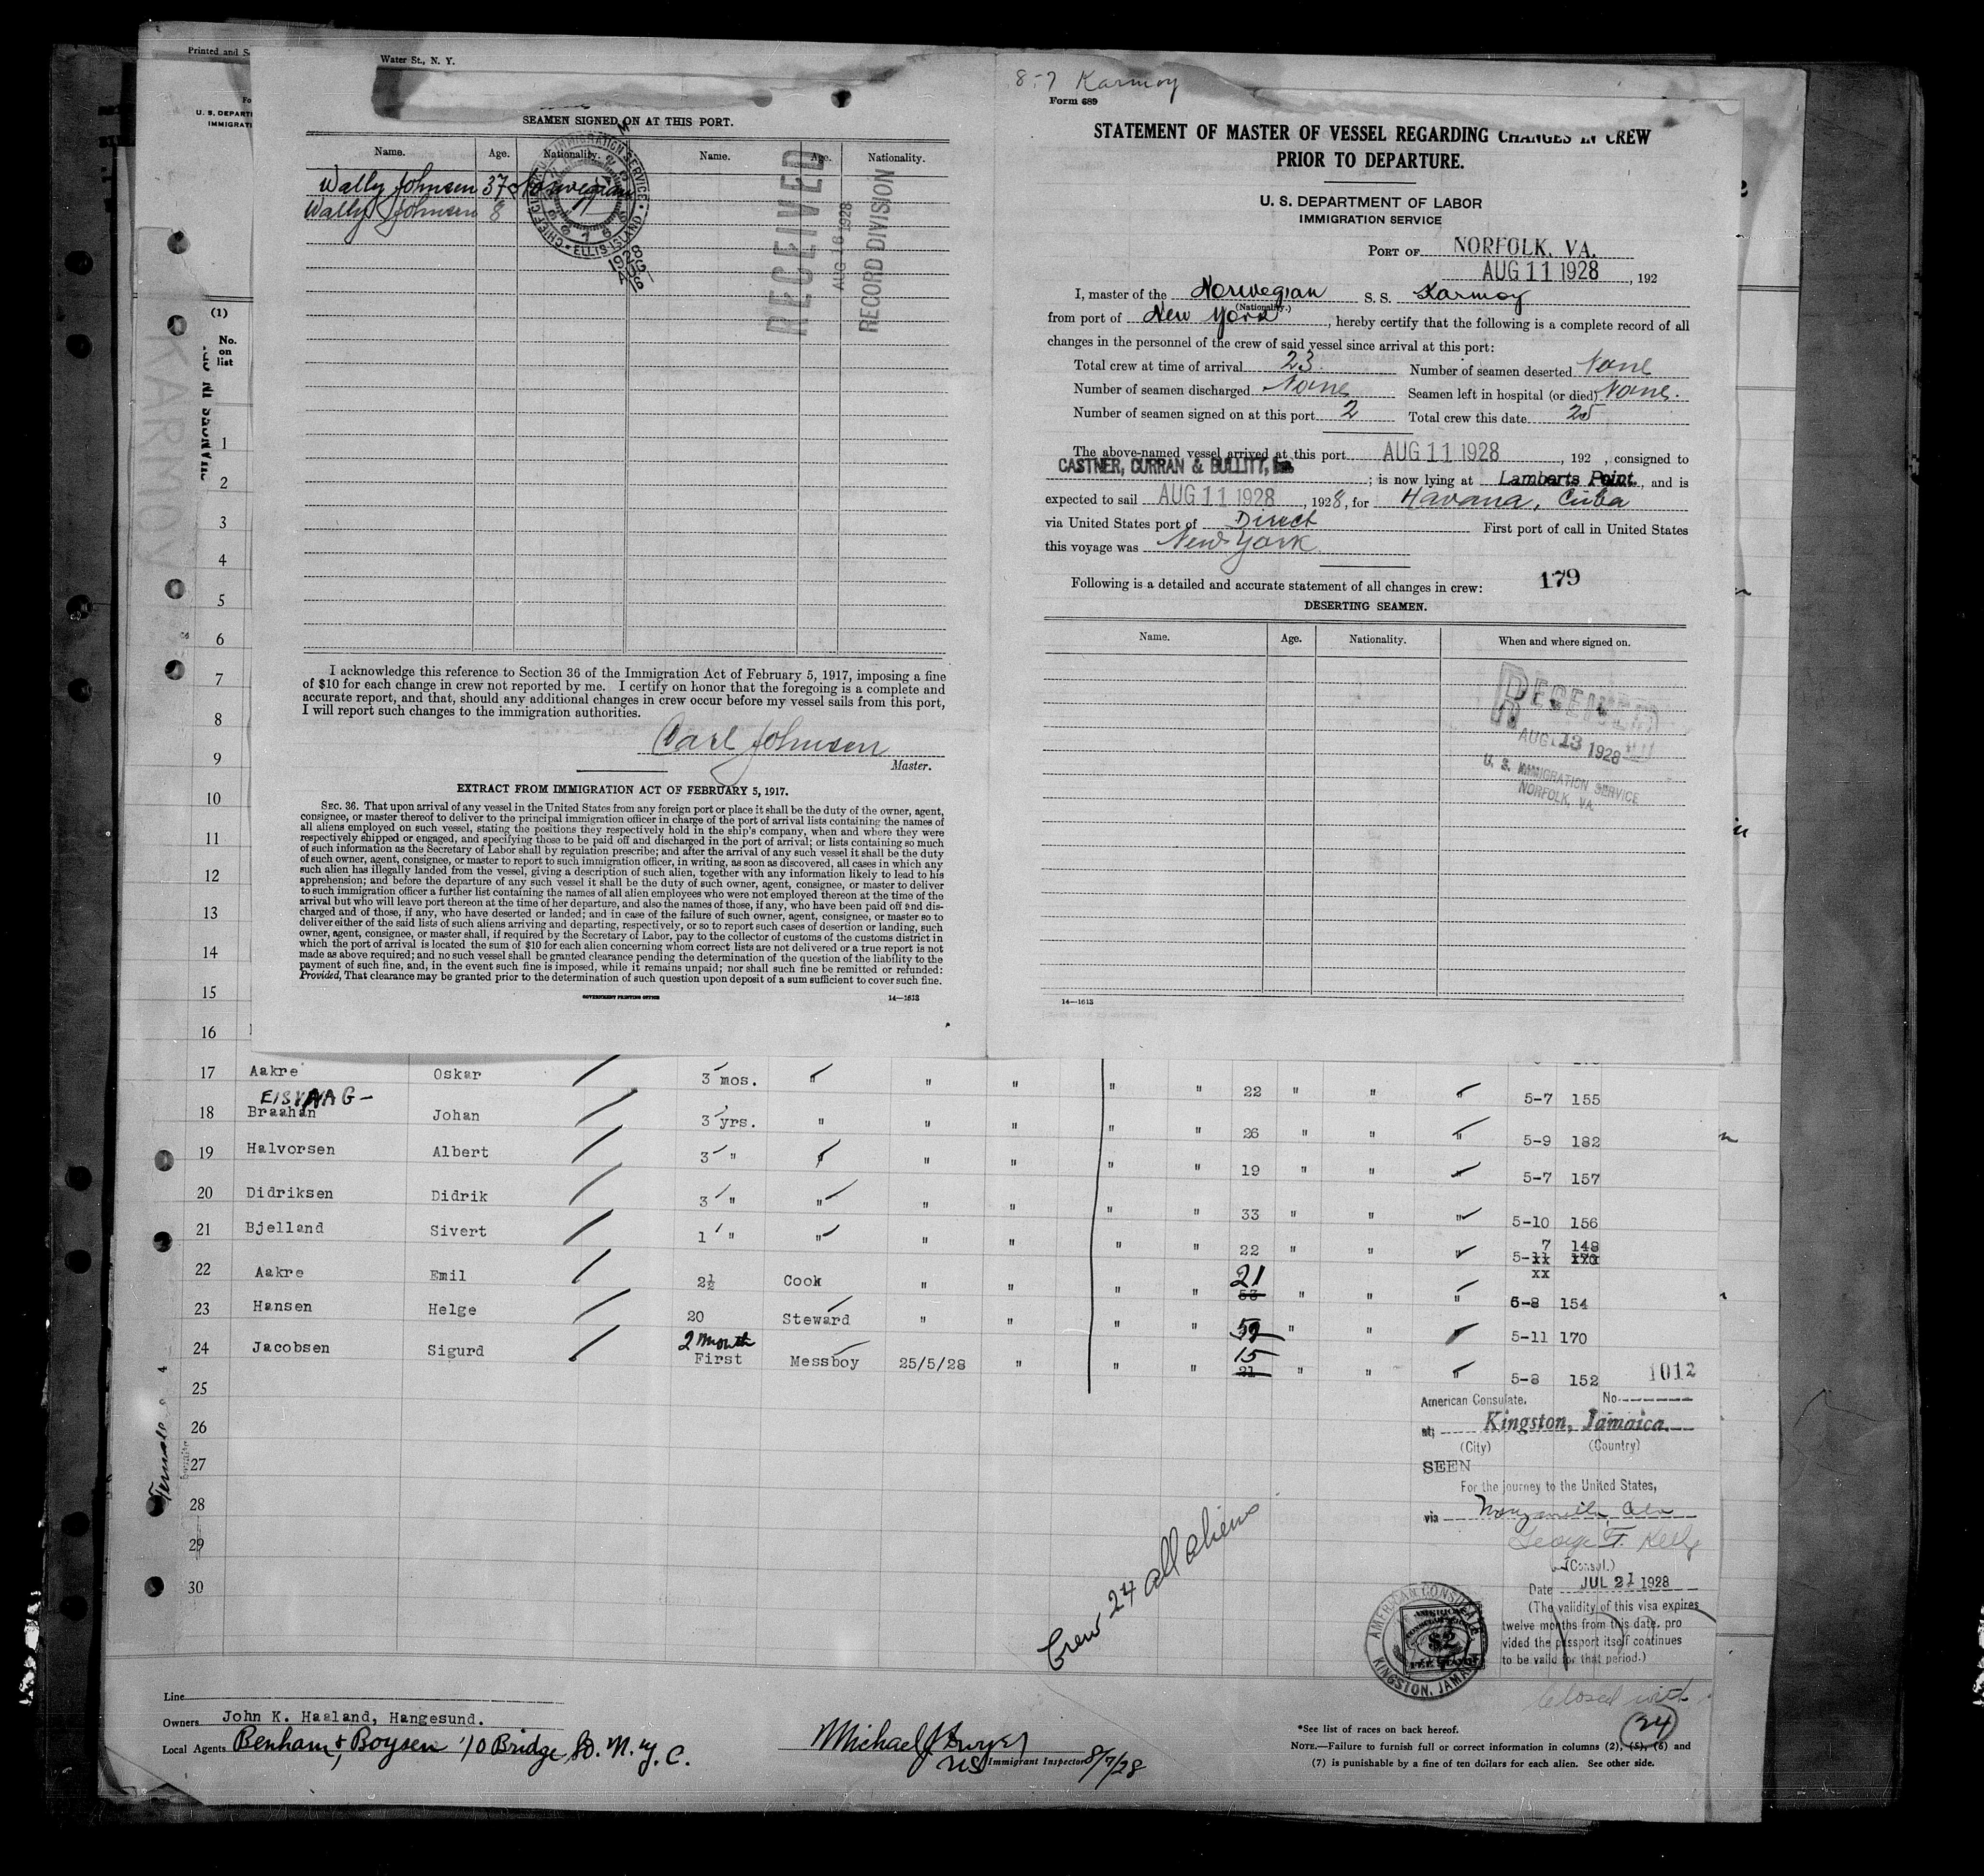 Printed and
Water St., N. Y.
U. S. DEPARTM
IMMIGRATI
(1)
No.
on
list
KARMOY
SEAMEN SIGNED ON AT THIS PORT.
Name. Age. Nationality. Name. Age. Nationality.
Wally Johnsen 37 Norwegian
Wally Johnsen 8
CHIEF CLERK'S IMMIGRATION SERVICE ELLIS ISLAND
RECEIVED
AUG 16 1928
RECORD DIVISION
I acknowledge this reference to Section 36 of the Immigration Act of February 5, 1917, imposing a fine
of $10 for each change in crew not reported by me. I certify on honor that the foregoing is a complete and
accurate report, and that, should any additional changes in crew occur before my vessel sails from this port,
I will report such changes to the immigration authorities.
Carl Johnsen
Master.
EXTRACT FROM IMMIGRATION ACT OF FEBRUARY 5, 1917.
SEC. 36. That upon arrival of any vessel in the United States from any foreign port or place it shall be the duty of the owner, agent,
consignee, or master thereof to deliver to the principal immigration officer in charge of the port of arrival lists containing the names of
all aliens employed on such vessel, stating the positions they respectively hold in the ship's company, when and where they were
respectively shipped or engaged, and specifying those to be paid off and discharged in the port of arrival; or lists containing so much
of such information as the Secretary of Labor shall by regulation prescribe; and after the arrival of any such vessel it shall be the duty
of such owner, agent, consignee, or master to report to such immigration officer, in writing, as soon as discovered, all cases in which any
such alien has illegally landed from the vessel, giving a description of such alien, together with any information likely to lead to his
apprehension; and before the departure of any such vessel it shall be the duty of such owner, agent, consignee, or master to deliver
to such immigration officer a further list containing the names of all alien employees who were not employed thereon at the time of the
arrival but who will leave port thereon at the time of her departure, and also the names of those, if any, who have been paid off and dis-
charged and of those, if any, who have deserted or landed; and in case of the failure of such owner, agent, consignee, or master so to
deliver either of the said lists of such aliens arriving and departing, respectively, or so to report such cases of desertion or landing, such
owner, agent, consignee, or master shall, if required by the Secretary of Labor, pay to the collector of customs of the customs district in
which the port of arrival is located the sum of $10 for each alien concerning whom correct lists are not delivered or a true report is not
made as above required; and no such vessel shall be granted clearance pending the determination of the question of the liability to the
payment of such fine, and, in the event such fine is imposed, while it remains unpaid; nor shall such fine be remitted or refunded:
Provided, That clearance may be granted prior to the determination of such question upon deposit of a sum sufficient to cover such fine.
GOVERNMENT PRINTING OFFICE 14—1613
8-7 Karmoy
Form 689
STATEMENT OF MASTER OF VESSEL REGARDING CHANGES IN CREW
PRIOR TO DEPARTURE.
U. S. DEPARTMENT OF LABOR
IMMIGRATION SERVICE
PORT OF NORFOLK, VA.
AUG 11 1928, 192
I, master of the Norwegian S. S. Karmoy
(Nationality.)
from port of New York, hereby certify that the following is a complete record of all
changes in the personnel of the crew of said vessel since arrival at this port:
Total crew at time of arrival 23 Number of seamen deserted None
Number of seamen discharged None Seamen left in hospital (or died) None.
Number of seamen signed on at this port 2 Total crew this date 25
The above-named vessel arrived at this port AUG 11 1928, 192 , consigned to
CASTNER, CURRAN & BULLITT, Inc. ; is now lying at Lamberts Point, and is
expected to sail AUG 11 1928, 1928, for Havana, Cuba
via United States port of Direct First port of call in United States
this voyage was New York
Following is a detailed and accurate statement of all changes in crew: 179
DESERTING SEAMEN.
Name. Age. Nationality. When and where signed on.
RECEIVED
AUG 13 1928
U. S. IMMIGRATION SERVICE
NORFOLK, VA.
14—1613
1
2
3
4
5
6
7
8
9
10
11
12
13
14
15
16
17 Aakre Oskar 3 mos. " " " " " 22 " " " 5-7 155
EISVAAG-
18 Braahan Johan 3 yrs. " " " " " 26 " " " 5-9 182
19 Halvorsen Albert 3 " " " " " " 19 " " " 5-7 157
20 Didriksen Didrik 3 " " " " " " 33 " " " 5-10 156
21 Bjelland Sivert 1 " " " " " " 22 " " " 5-11 170
7 148
xx
22 Aakre Emil 2½ Cook " " " " 53 21 " " " 5-8 154
23 Hansen Helge 20 Steward " " " " 52 " " " 5-11 170
2 month
24 Jacobsen Sigurd First Messboy 25/5/28 " " " 21 15 " " " 5-8 152
25
26
27
28
29
30
1012
American Consulate. No.
at Kingston, Jamaica.
(City) (Country)
SEEN
For the journey to the United States,
via
George F. Kelly
(Consul.)
Date JUL 21 1928
(The validity of this visa expires
twelve months from this date, pro
vided the passport itself continues
to be valid for that period.)
AMERICAN CONSULATE
KINGSTON, JAMAICA
AMERICAN
$2
FEE STAMP
Crew 24 all aliens
Closed with
24
Line
Owners John K. Haaland, Hangesund.
Local Agents Benham & Boysen 10 Bridge St. N. Y. C.
Michael J. Dwyer
US Immigrant Inspector 8/7/28
*See list of races on back hereof.
NOTE.—Failure to furnish full or correct information in columns (2), (5), (6) and
(7) is punishable by a fine of ten dollars for each alien. See other side.